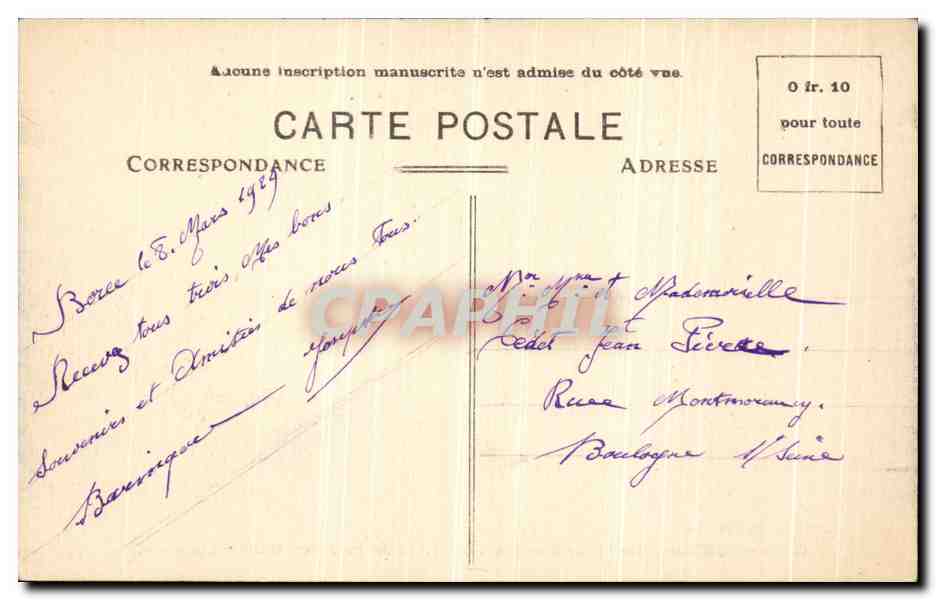 Aucune inscription manuscrite n'est admise du côté vue.
CARTE POSTALE
CORRESPONDANCE
ADRESSE
0 fr. 10
pour toute
CORRESPONDANCE
le 8. Mars 1929
Recevez tous trois, Mes bons
Souvenirs et Amitiés de nous Tous.
Joseph
et Mademoiselle
Jean
Ruee Montmorancy.
Boulogne s/ Seine
CPAPHIL